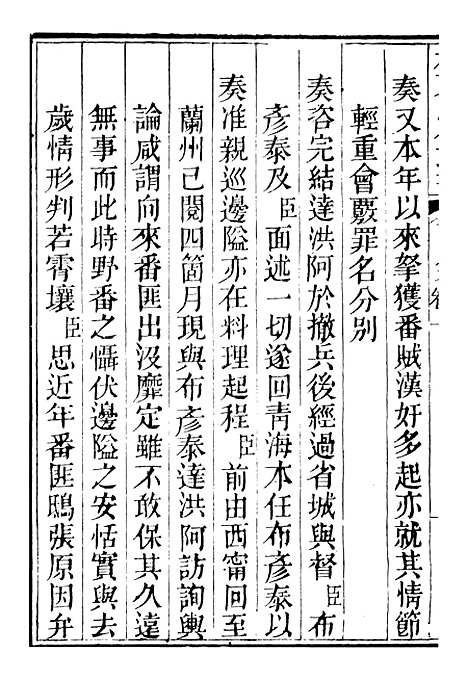 奏又本年以來拏獲番賊漢奸多起亦就其情節
輕重會覈罪名分別
奏咨完結達洪阿於撤兵後經過省城與督臣布
彥泰及臣面述一切遂回青海本任布彥泰以
奏准親巡邊隘亦在料理起程臣前由西甯回至
蘭州已閱四箇月現與布彥泰達洪阿訪詢輿
論咸謂向來番匪出沒靡定雖不敢保其久遠
無事而此時野番之懾伏邊隘之安恬實與去
歲情形判若霄壤臣思近年番匪鴟張原因弁